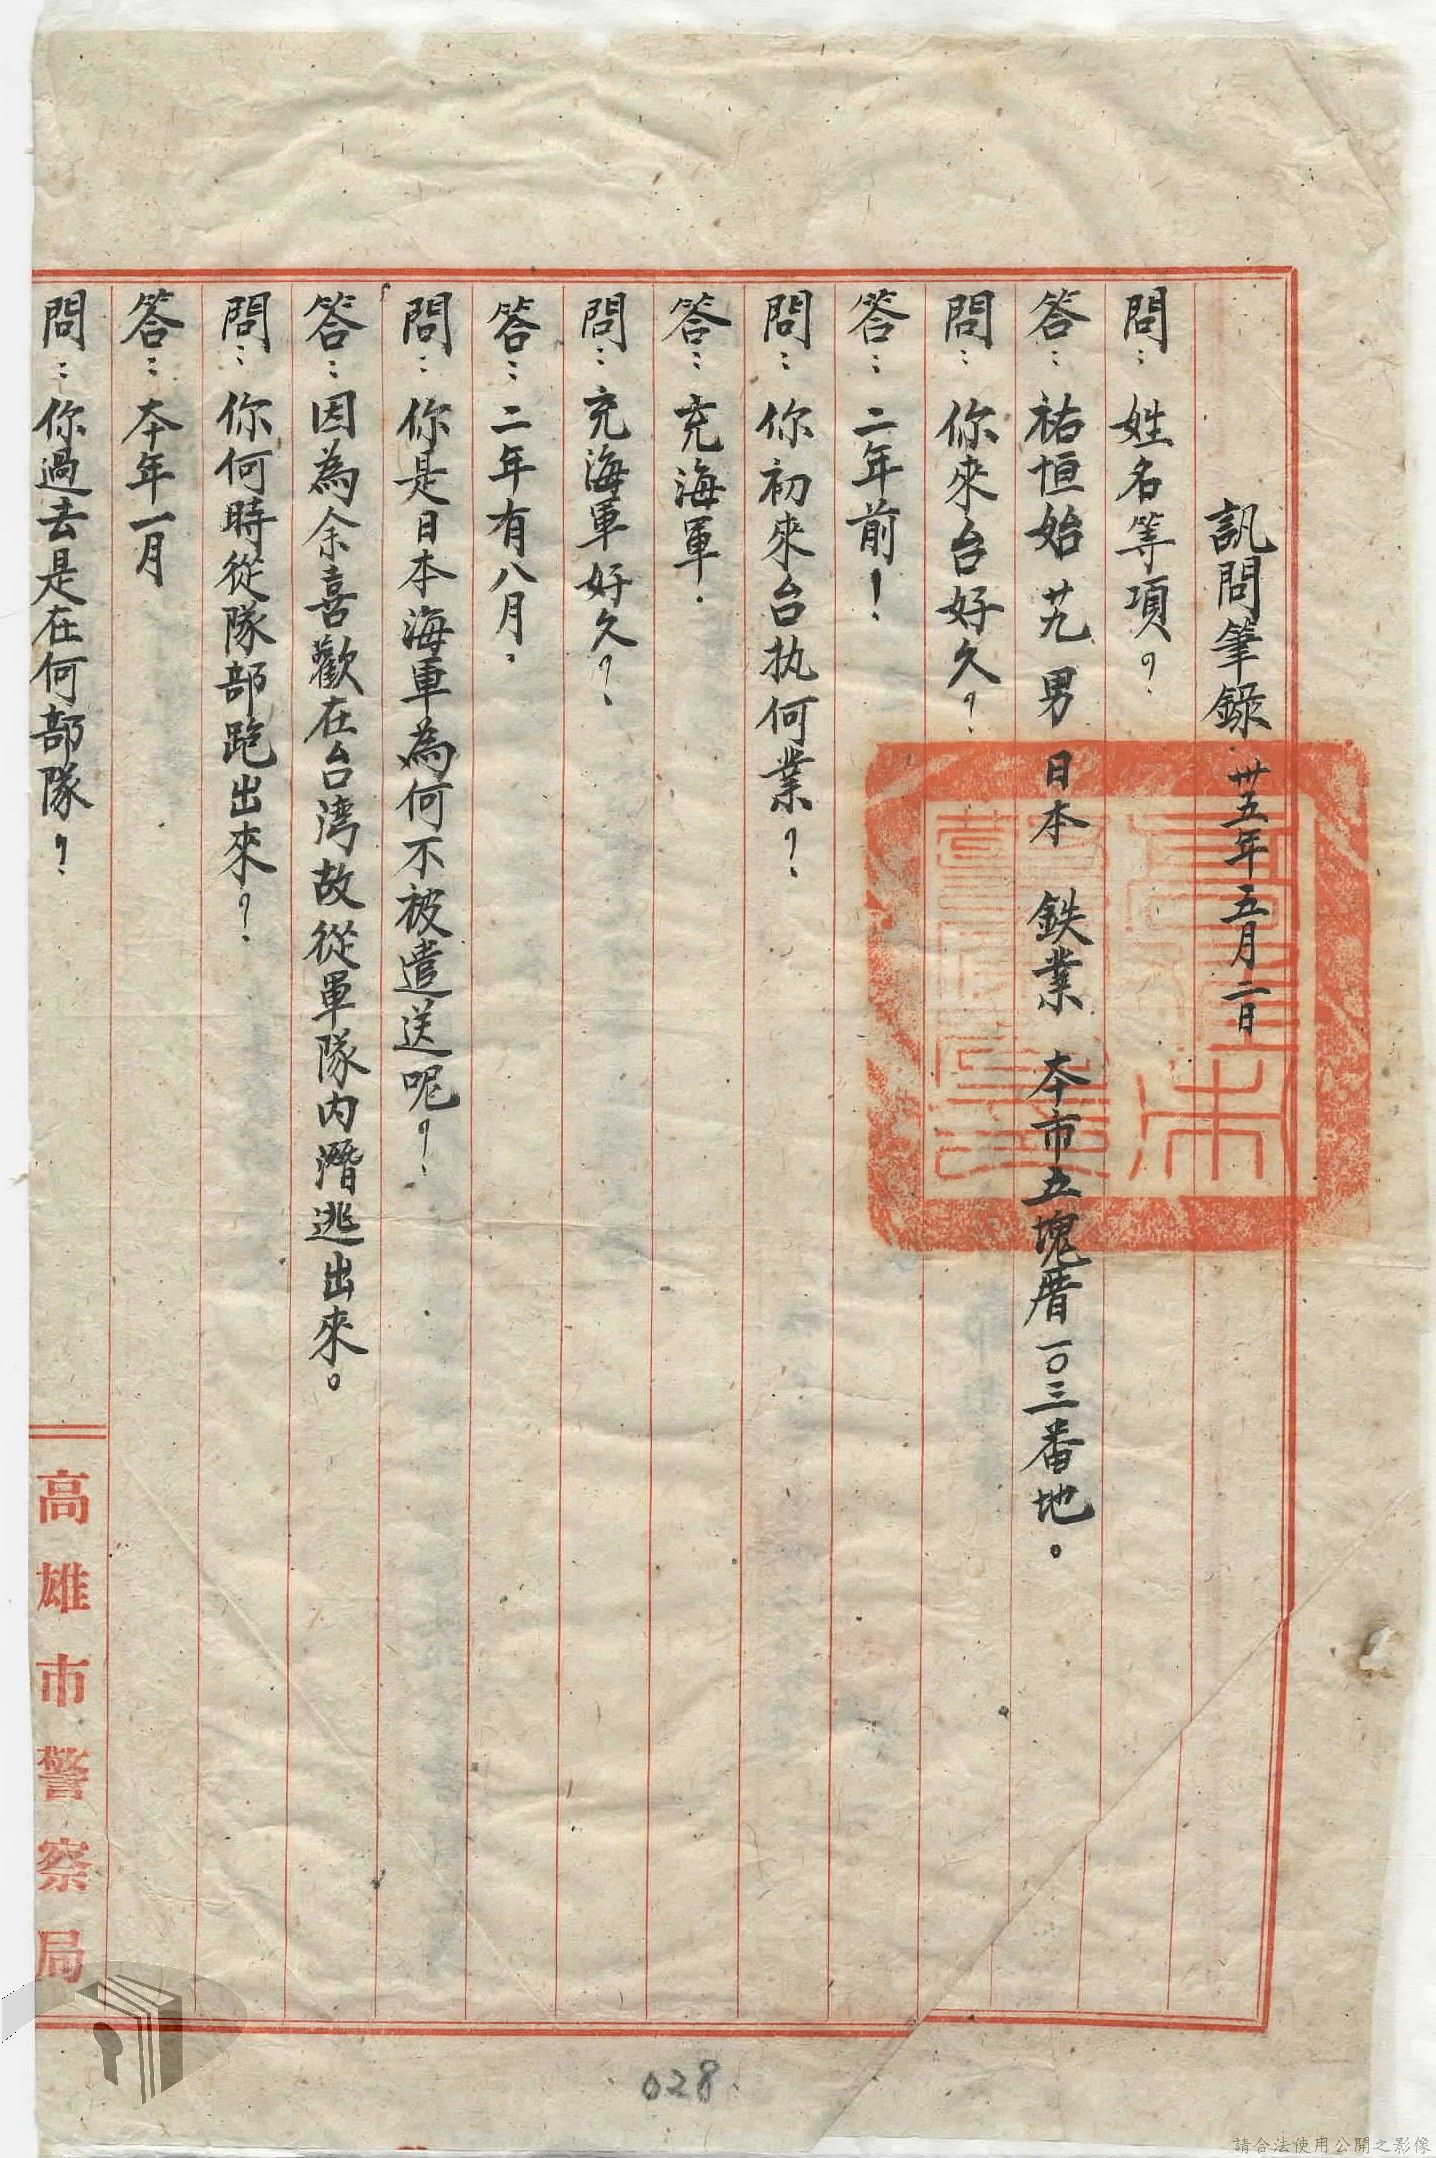 訊問筆錄 卅五年五月二日
問：姓名等項？
答：祐恒始 廿九 男 日本 鉄業 本市五塊厝一〇三番地。
問：你來台好久？
答：二年前！
問：你初來台执何業？
答：充海軍.
問：充海軍好久？
答：二年有八月。
問：你是日本海軍為何不被遣送呢？
答：因為余喜歡在台湾故從軍隊內潛逃出來。
問：你何時從隊部跑出來？
答：本年一月
問：你過去是在何部隊？
高雄市警察局
028
請合法使用公開之影像